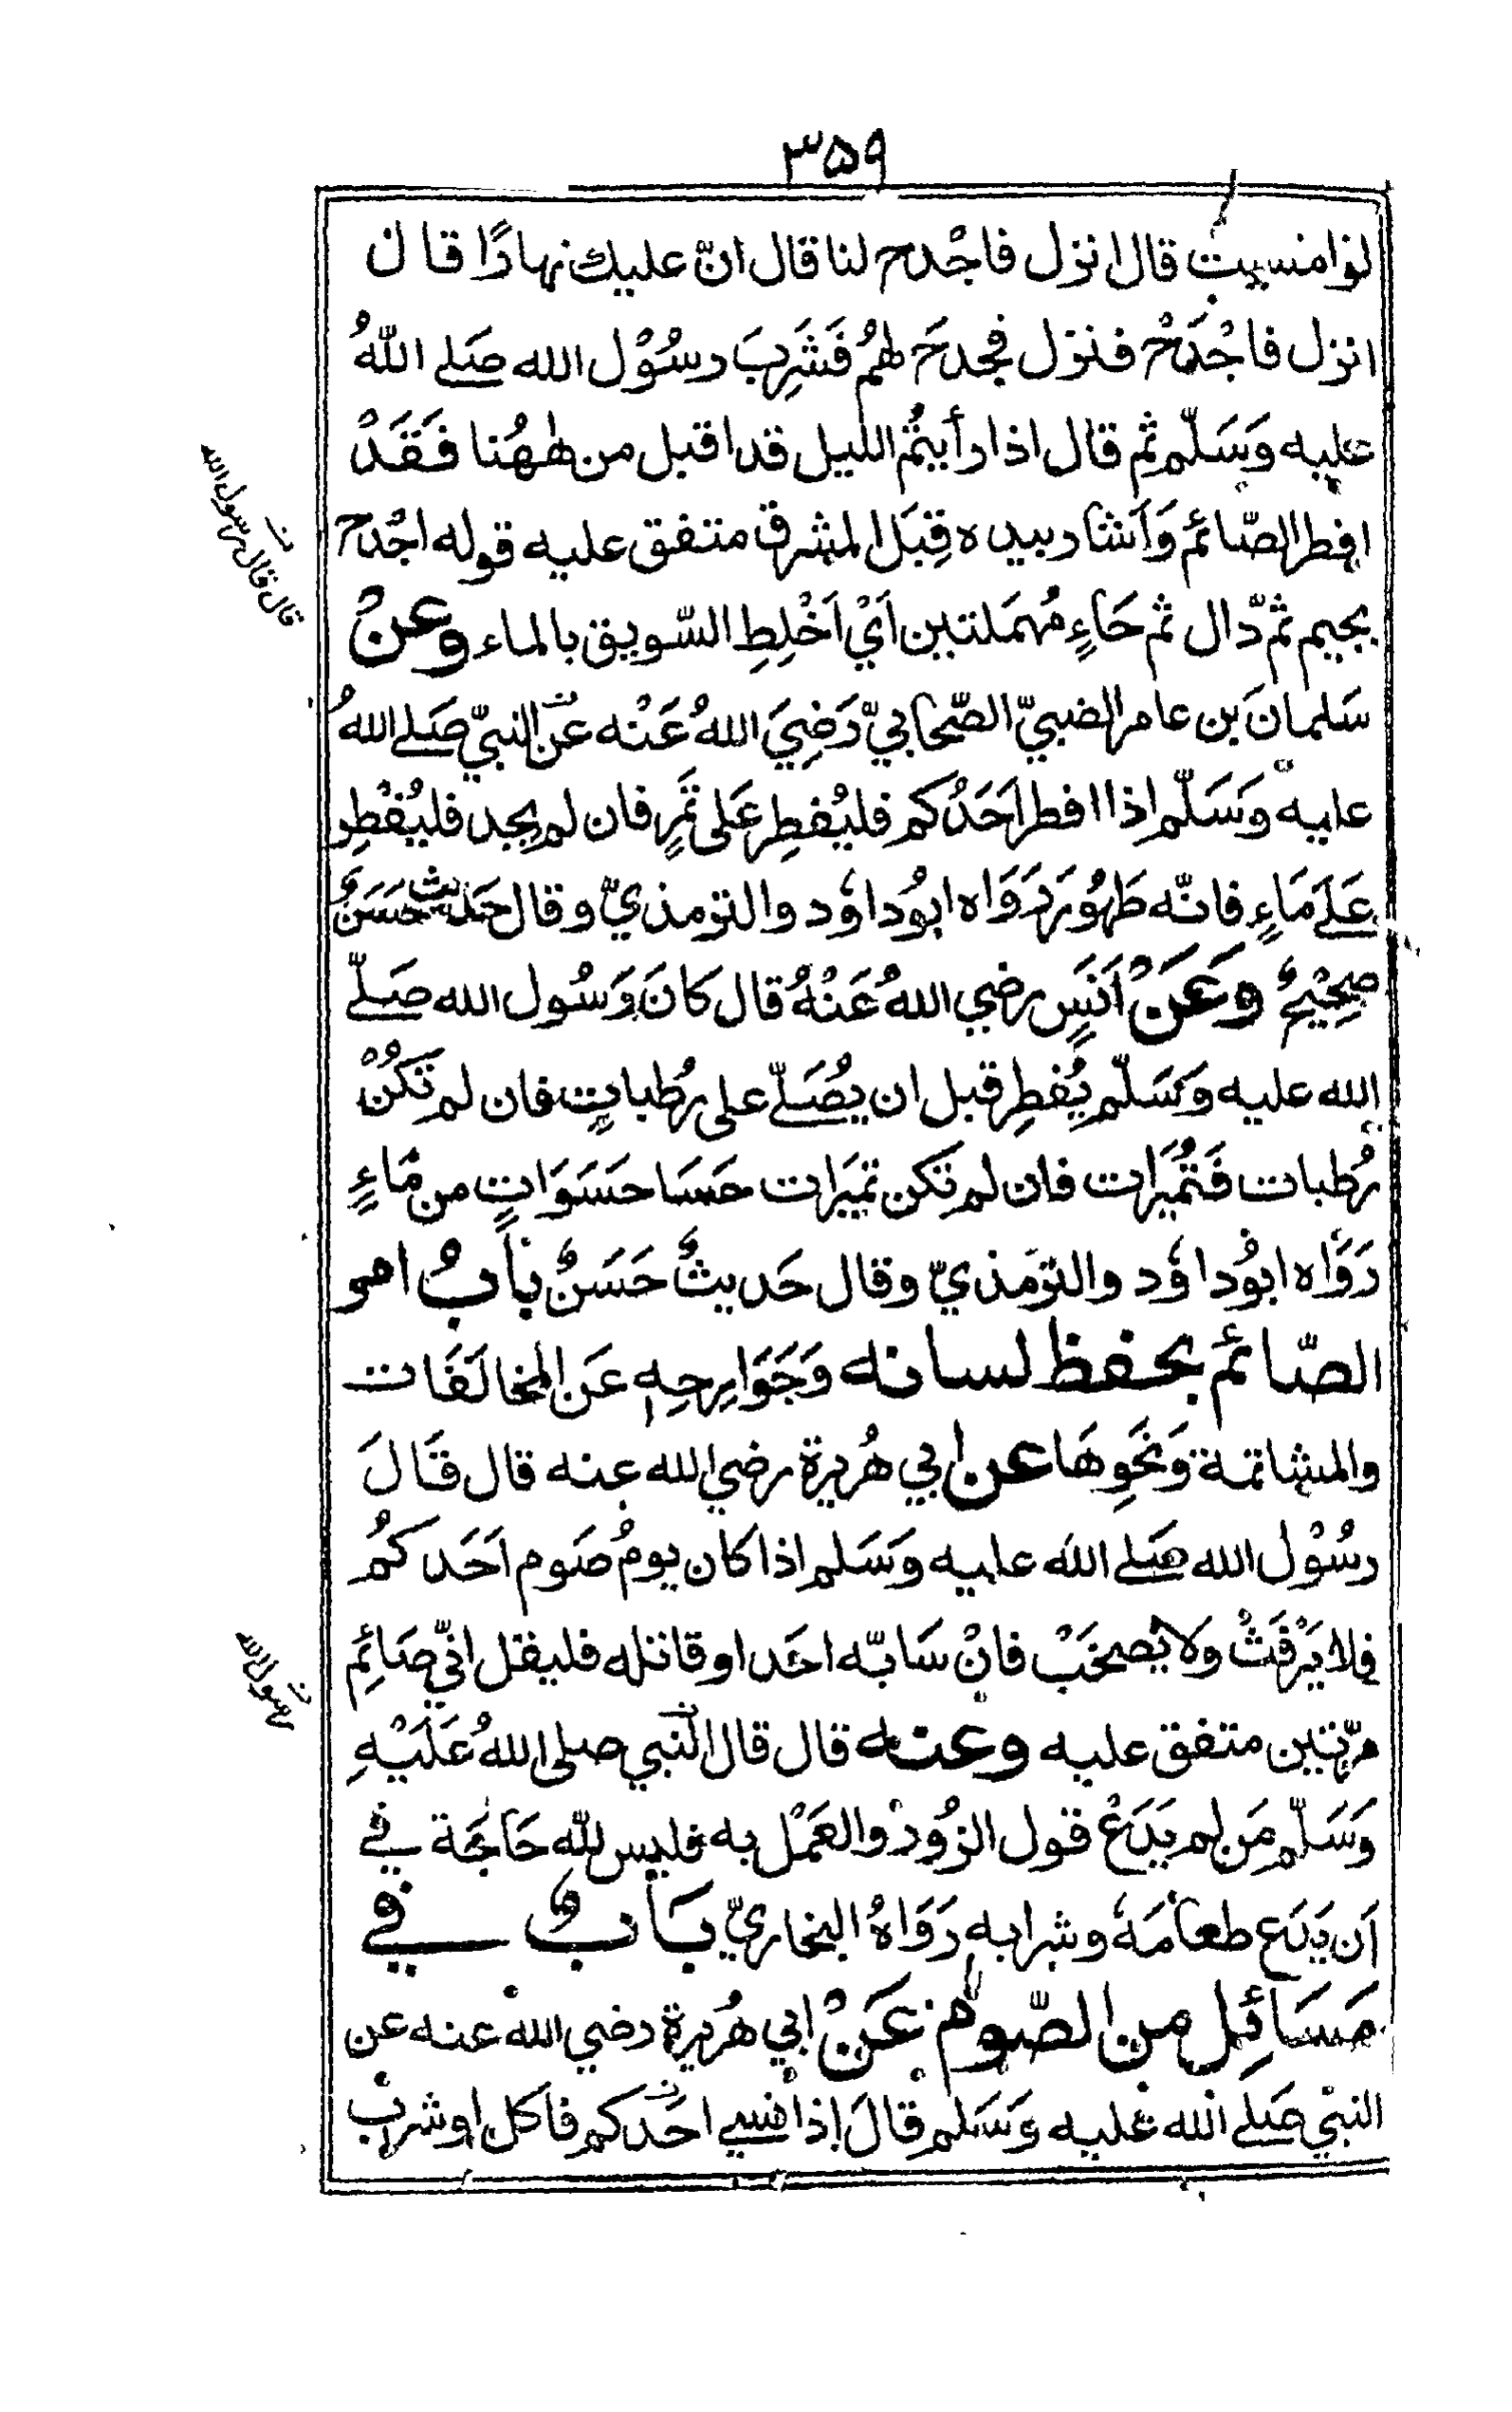 ٣٥٩
لوامسيت قال انزل فاجْدح لنا قال انّ عليك نهارًا قال
انزل فاجْدَحْ فنزل فجدحَ لهُمُ فَشَرِبَ رسُوْل الله صَلے اللّٰهُ
عليه وَسَلّم ثم قال اذا رأيتُم الليل قد اقبل من هٰهُنا فَقَدْ
افطر الصّائم وَاَشار بيده قِبَل المشرق متفق عليه قوله اجْدح
بجيم ثم دّال ثم حَاءٍ مُهمَلتين اَيْ اَخْلِطِ السّويق بالماء وعنْ
سَلمانَ بن عامر الضبيّ الصّحابيّ رَضِيَ اللهُ عَنْه عَن النبيّ صَلے اللهُ
عليه وَسَلّم اذا افطر اَحَدُكم فليُفطِر عَلى تَمرٍ فان لم يجد فليُفْطِر
عَلَے مَاءٍ فانّه طَهُور رَوَاه ابوُداوٗد والترمذيّ وقال حَديث حَسَنٌ
صحِيْحٌ وَعَنْ اَنَسٍ رضي اللهُ عَنْهُ قال كانَ رَسُول الله صَلّے
الله عليه وَسَلّم يُفطِر قبل ان يُصَلّے على رُطباتٍ فان لم تَكُنْ
رُطبات فَتُمَيرات فان لم تَكن تميَرات حَسَا حَسَوَاتٍ من مَاءٍ
رَوَاه ابوُداوٗد والترمذيّ وقال حَديثٌ حَسَنٌ بابُ امو
الصّائم بحفظ لسانه وَجَوَارِحِهٖ عَن المخالَفَات
والمشاتمة وَنَحوِهَا عن ابي هُريرة رضي الله عنه قال قَالَ
رسُوْل الله صَلے الله عليه وَسَلم اذا كان يومُ صَوم اَحَدكمُ
فلا يَرْفَثْ ولا يَصخَبْ فانْ سَابّه احَد او قاتله فليقل انيّ صَائِم
مرّتين متفق عليه وعنه قال قال النبي صلى اللهُ عَلَيْهِ
وَسَلّم مَن لم يَدَعْ قول الزُور والعَمَل به فليس للّٰه حَاجَة في
اَن يَدَع طعَامَهٗ وشرابه رَوَاهُ البخاريّ بَابٌ في
مَسَائِل من الصّوم عَنْ ابي هُريرة رضي الله عنه عن
النبي صَلے الله عليه وَسَلم قالَ اِذا نسي احَدكم فاكل او شرب
قال قال رسول الله
رسول الله